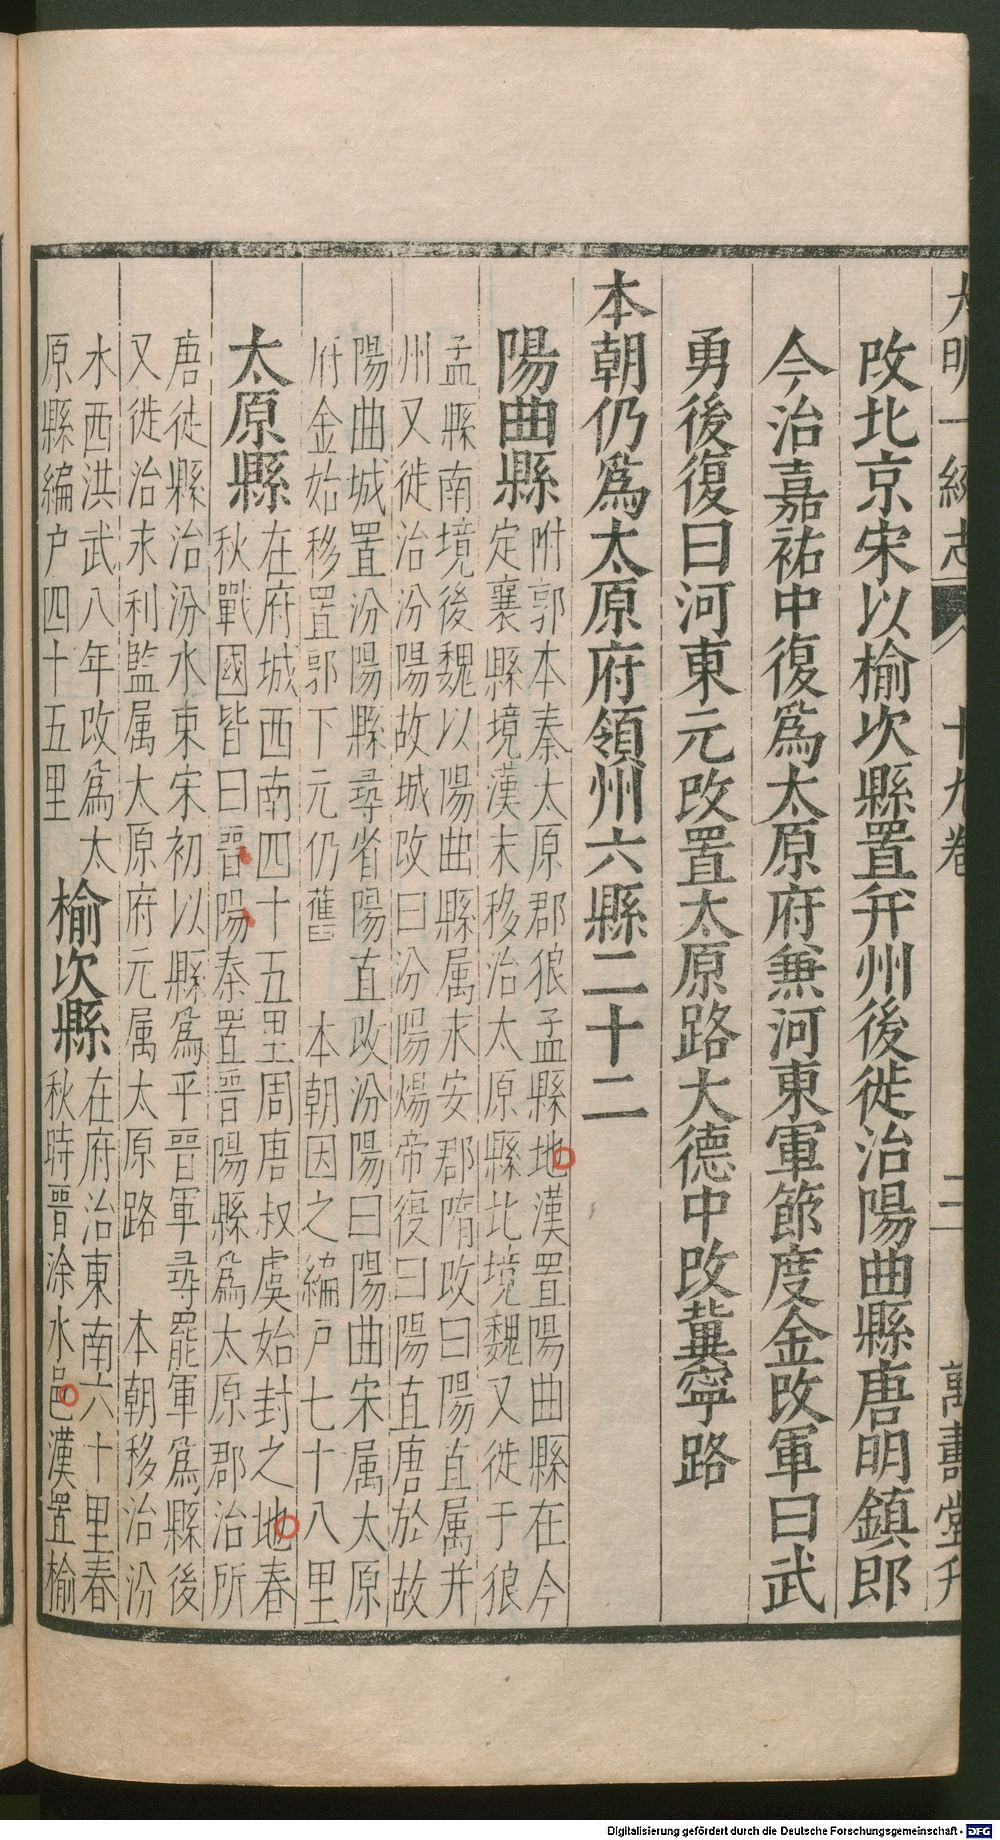 大明一統志 十九卷 二 萬壽堂刋
改北京宋以榆次縣置并州後徙治陽曲縣唐明鎮郎
今治嘉祐中復爲太原府兼河東軍節度金改軍曰武
勇後復曰河東元改置太原路大德中改冀寧路
本朝仍爲太原府領州六縣二十二
陽曲縣
附郭本秦太原郡狼孟縣地漢置陽曲縣在今
定襄縣境漢末移治太原縣北境魏又徙于狼
孟縣南境後魏以陽曲縣属永安郡隋改曰陽直属并
州又徙治汾陽故城改曰汾陽煬帝復曰陽直唐於故
陽曲城置汾陽縣尋省陽直改汾陽曰陽曲宋属太原
府金始移置郭下元仍舊 本朝因之編户七十八里
太原縣
在府城西南四十五里周唐叔虞始封之地春
秋戰國皆曰晉陽秦置晉陽縣爲太原郡治所
唐徙縣治汾水東宋初以縣爲平晉軍尋罷軍爲縣後
又徙治永利監属太原府元属太原路 本朝移治汾
水西洪武八年改爲太
原縣編户四十五里
榆次縣
在府治東南六十里春
秋時晉涂水邑漢置榆
Digitalisierung gefördert durch die Deutsche Forschungsgemeinschaft - DFG